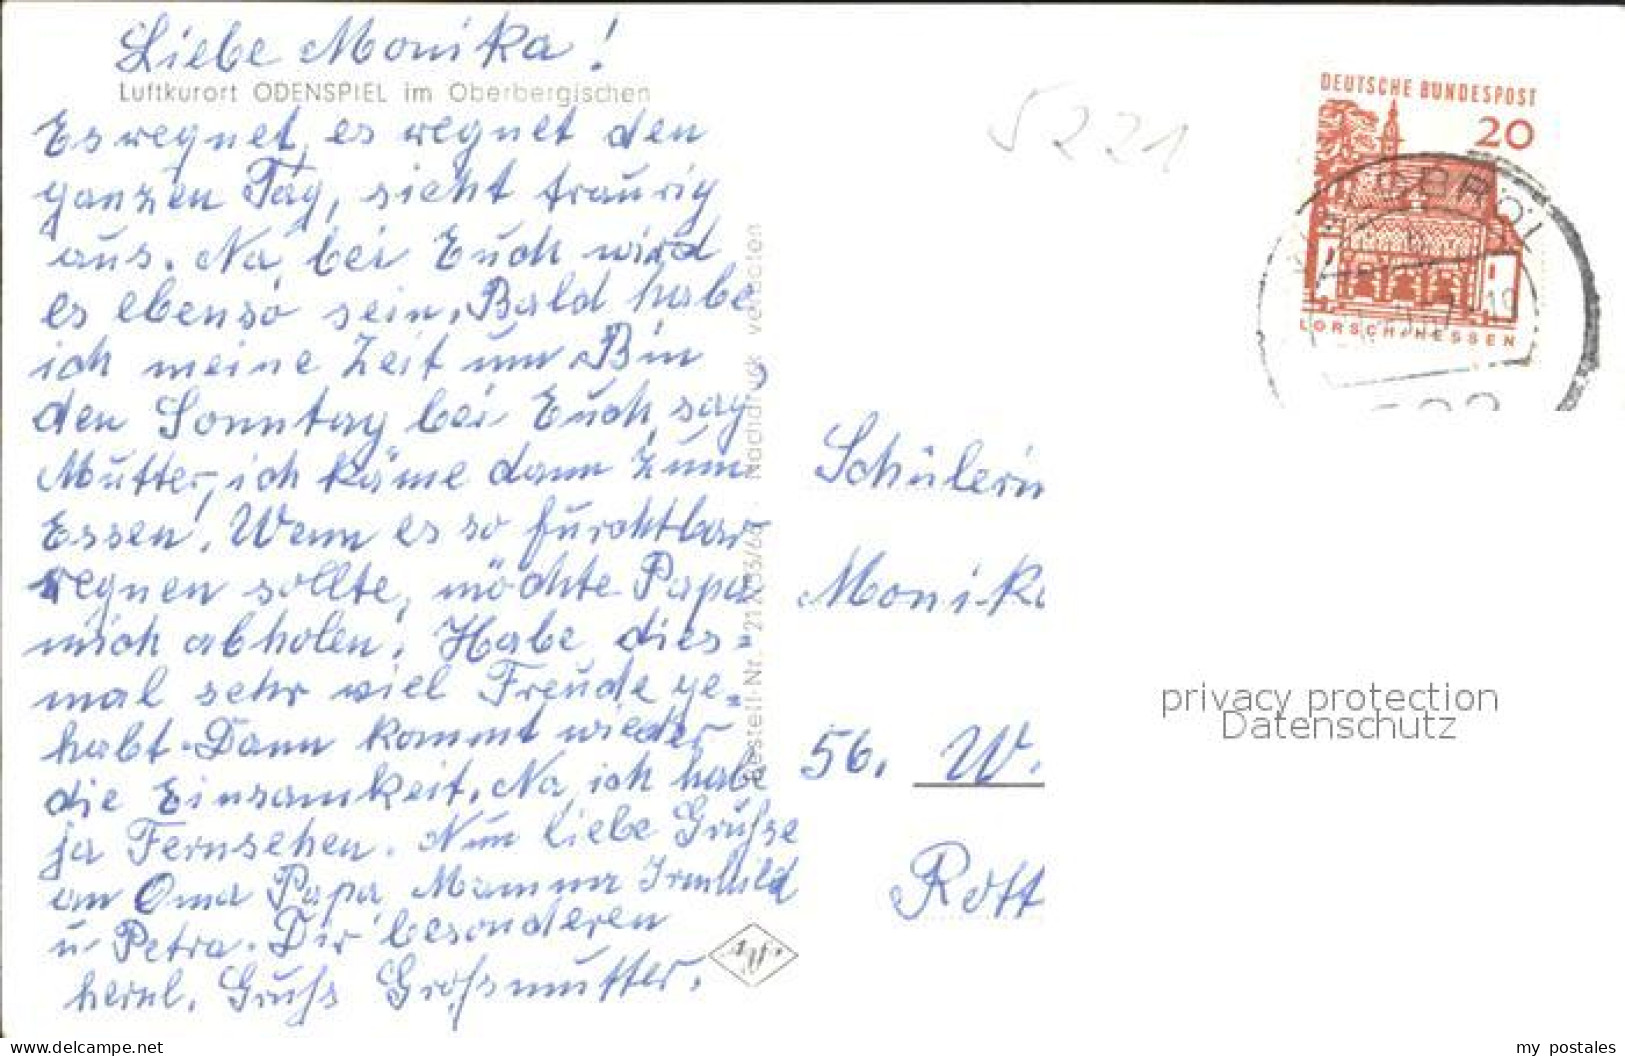 Liebe Monika!
Luftkurort ODENSPIEL im Oberbergischen
Es regnet, es regnet den
ganzen Tag, sieht traurig
aus. Na, bei Euch wird
es ebenso sein. Bald habe
ich meine Zeit um. Bin
den Sonntag bei Euch, sag
Mutter, ich käme dann zum
Essen. Wenn es so furchtbar
regnen sollte, möchte Papa
mich abholen. Habe dies=
mal sehr viel Freude ge=
habt. Dann kommt wieder
die Einsamkeit. Na, ich habe
ja Fernsehen. Nun liebe Grüße
an Oma Papa, Mamma Irmhild
u. Petra. Dir besonderen
herzl. Gruß Großmutter.
Bestell-Nr. Nachdruck verboten
5221
DEUTSCHE BUNDESPOST
20
LORSCH/HESSEN
Schülerin
Monika
56. W.
Rott
privacy protection
Datenschutz
https://www.ansichtskarten-center.de
my postales